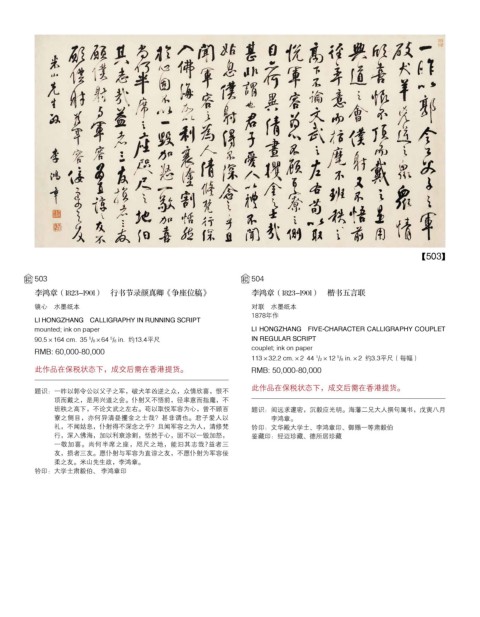 一昨以郭令公父子之軍
破犬羊凶逆之眾眾情
欣喜恨不頂而戴之是用
興道之會僕射又不悟前
徑率意而指麾不班秩之
高下不論文武之左右苟以取
悅軍容為心曾不顧百寮之側
目亦何異清晝攫金之士哉
甚非謂也君子愛人以禮不聞
姑息僕射得不深念之乎且
聞軍容之為人清修梵行深
入佛海加以利衰塗割恬然
於心固不以一毀加怒一敬加喜
尚何半席之座咫尺之地汩
其志哉益者三友損者三友
願僕射與軍容為直諒之友不
願僕射為軍容佞柔之友
米山先生政 李鴻章
【503】
503
李鸿章（1823-1901） 行书节录颜真卿《争座位稿》
镜心 水墨纸本
LI HONGZHANG CALLIGRAPHY IN RUNNING SCRIPT
mounted; ink on paper
90.5×164 cm. 35 5/8×64 5/8 in. 约13.4平尺
RMB: 60,000-80,000
此作品在保税状态下，成交后需在香港提货。
题识：一昨以郭令公以父子之军，破犬羊凶逆之众，众情欣喜，恨不
顶而戴之，是用兴道之会。仆射又不悟前，径率意而指麾，不
班秩之高下，不论文武之左右。苟以取悦军容为心，曾不顾百
寮之侧目，亦何异清昼攫金之士哉？甚非谓也。君子爱人以
礼，不闻姑息，仆射得不深念之乎？且闻军容之为人，清修梵
行，深入佛海，加以利衰涂割，恬然于心，固不以一毁加怒，
一敬加喜。尚何半席之座，咫尺之地，能汩其志哉?益者三
友，损者三友。愿仆射与军容为直谅之友，不愿仆射为军容佞
柔之友。米山先生政，李鸿章。
钤印：大学士肃毅伯、 李鸿章印
504
李鸿章（1823-1901） 楷书五言联
对联 水墨纸本
1878年作
LI HONGZHANG FIVE-CHARACTER CALLIGRAPHY COUPLET
IN REGULAR SCRIPT
couplet; ink on paper
113×32.2 cm. ×2 44 1/2×12 5/8 in. ×2 约3.3平尺（每幅）
RMB: 50,000-80,000
此作品在保税状态下，成交后需在香港提货。
题识：闳远求道密，沉毅应光明。海藩二兄大人撰句属书，戊寅八月
李鸿章。
钤印：文华殿大学士、李鸿章印、御赐一等肃毅伯
鉴藏印：经迈珍藏、德州居珍藏